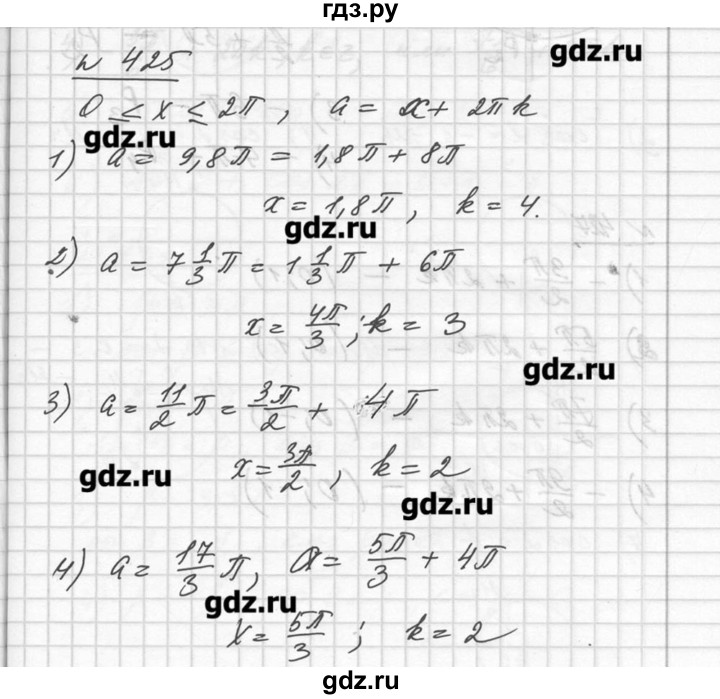 гдз.ру
gdz.ru
n 425
0 ≤ x ≤ 2π , a = x + 2πk
gdz.ru
1) a = 9,8π = 1,8π + 8π
x = 1,8π , k = 4.
gdz.ru
2) a = 7 1/3 π = 1 1/3 π + 6π
x = 4π/3 ; k = 3
gdz.ru
3) a = 11/2 π = 3π/2 + 4π
x = 3π/2 , k = 2
gdz.ru
gdz.ru
4) a = 17/3 π, a = 5π/3 + 4π
gdz.ru
x = 5π/3 ; k = 2
gdz.ru